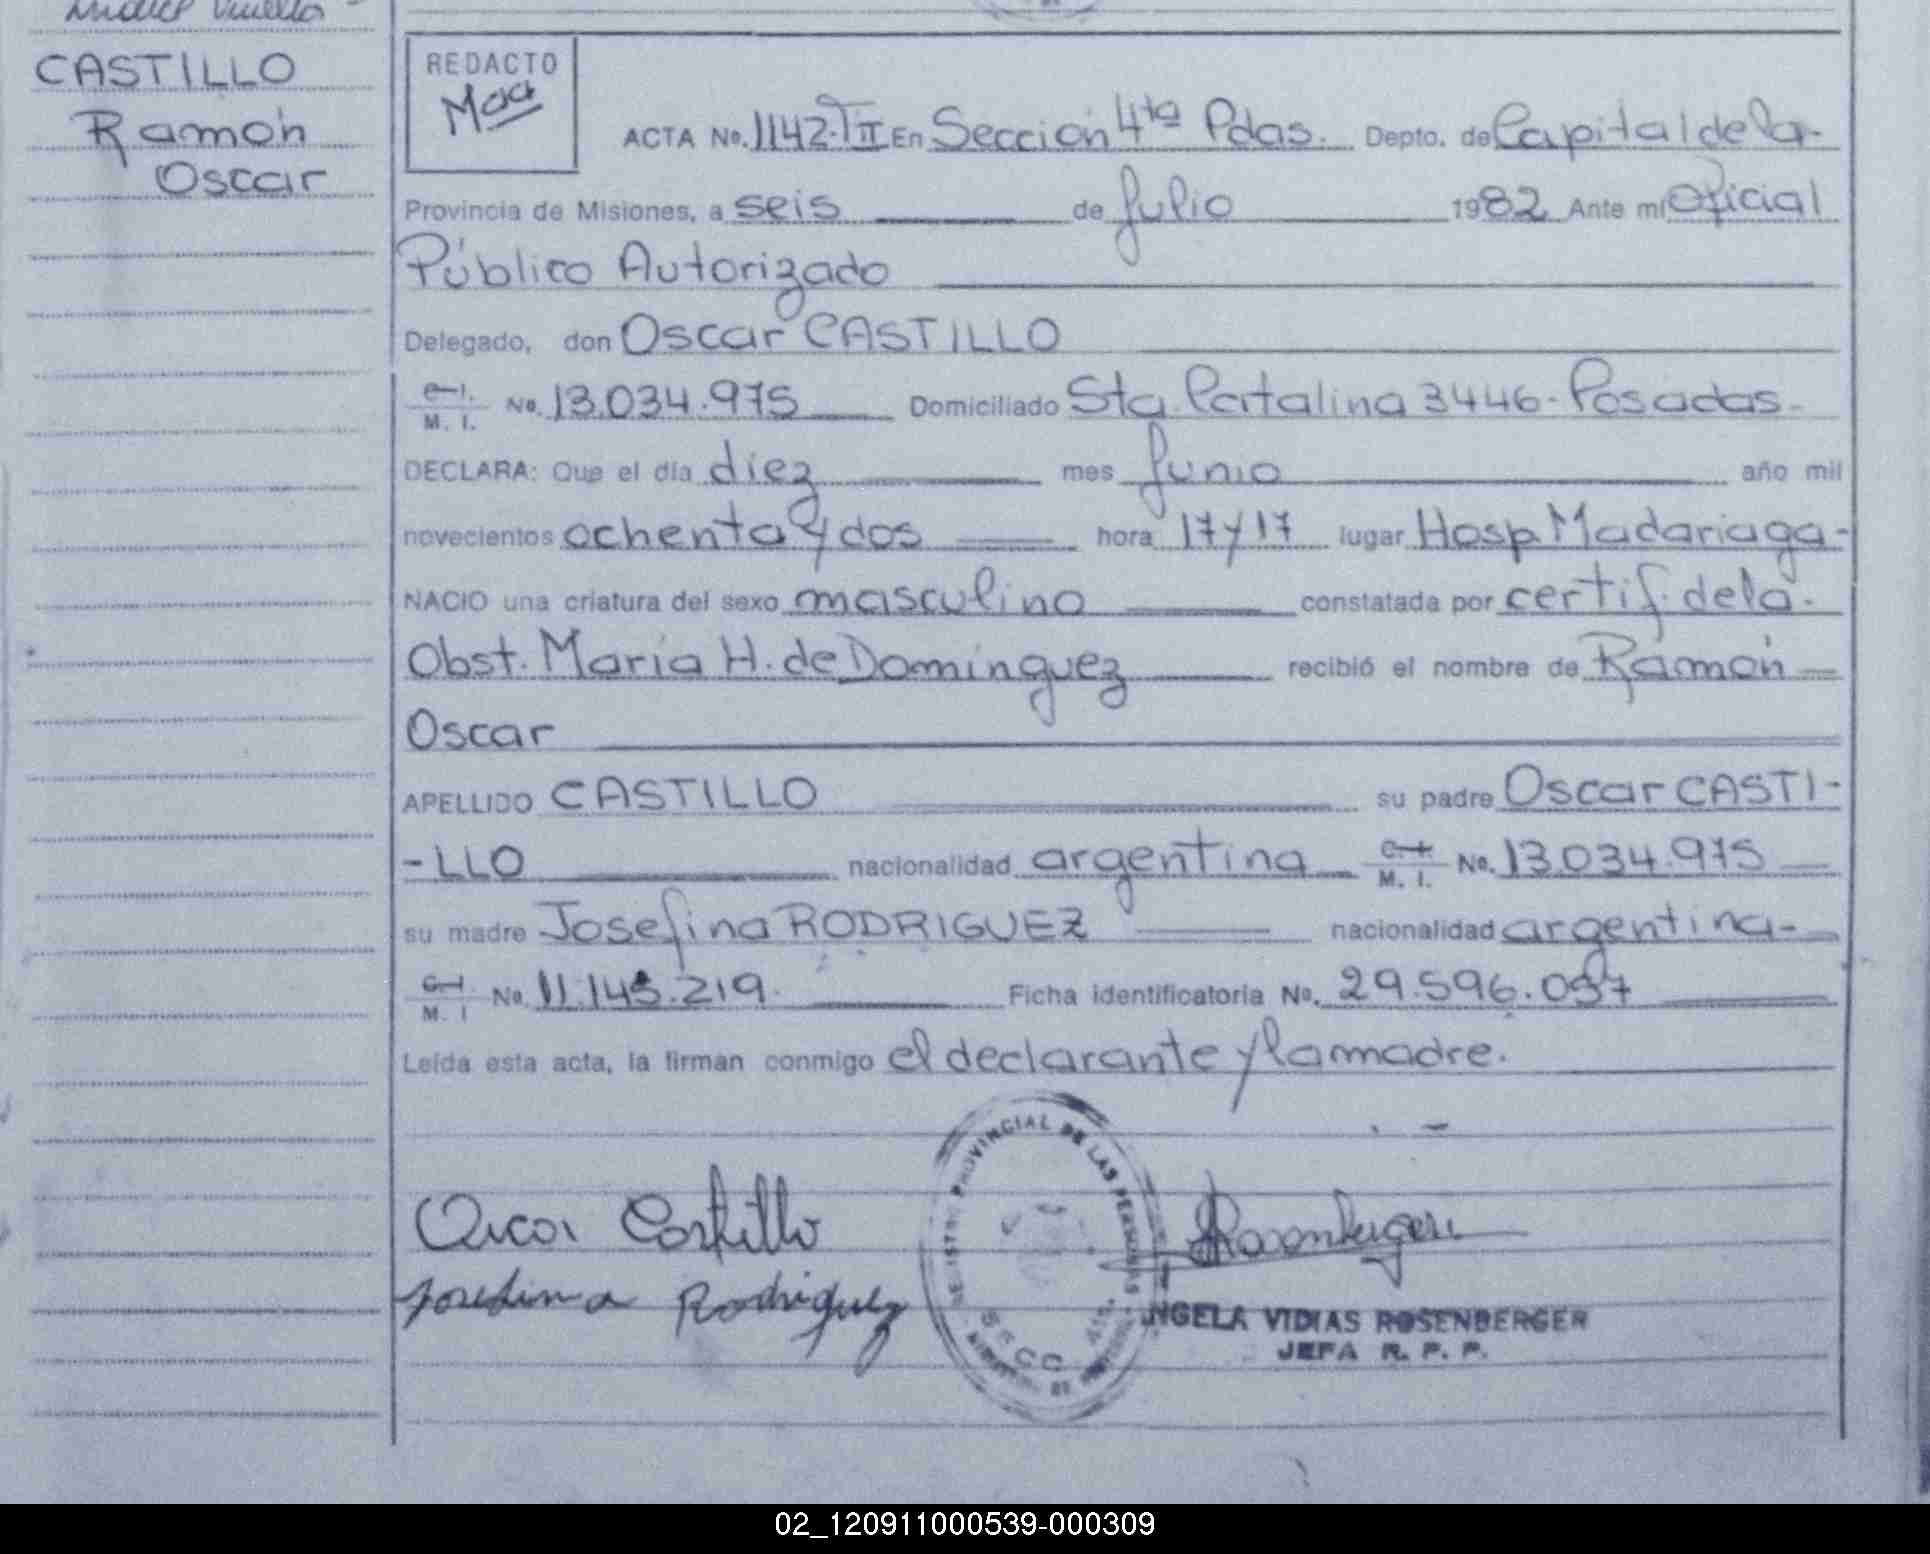 CASTILLO
Ramón
Oscar
REDACTO
ACTA No. 1142. T II En Sección 4ta Pdas. Depto. de Capital de la
Provincia de Misiones, a seis de Julio 1982 Ante mí Oficial
Público Autorizado
Delegado, don Oscar CASTILLO
C. I. M. I. No. 13.034.975 Domiciliado Sta. Catalina 3446 - Posadas -
DECLARA: Que el día diez mes Junio año mil
novecientos ochenta y dos hora 17 y 17 lugar Hosp. Madariaga -
NACIO una criatura del sexo masculino constatada por certif. de la
Obst. María H. de Domínguez recibió el nombre de Ramón
Oscar
APELLIDO CASTILLO su padre Oscar CASTI-
-LLO nacionalidad argentina C. I. M. I. No. 13.034.975
su madre Josefina RODRIGUEZ nacionalidad argentina -
C. I. M. I No. 11.145.219. Ficha identificatoria No. 29.596.057
Leída esta acta, la firman conmigo el declarante y la madre.
PROVINCIAL DE LAS PERSONAS
Oscar Castillo
Josefina Rodriguez
NGELA VIDIAS ROSENBERGER
JEFA R. P. P.
02_120911000539-000309